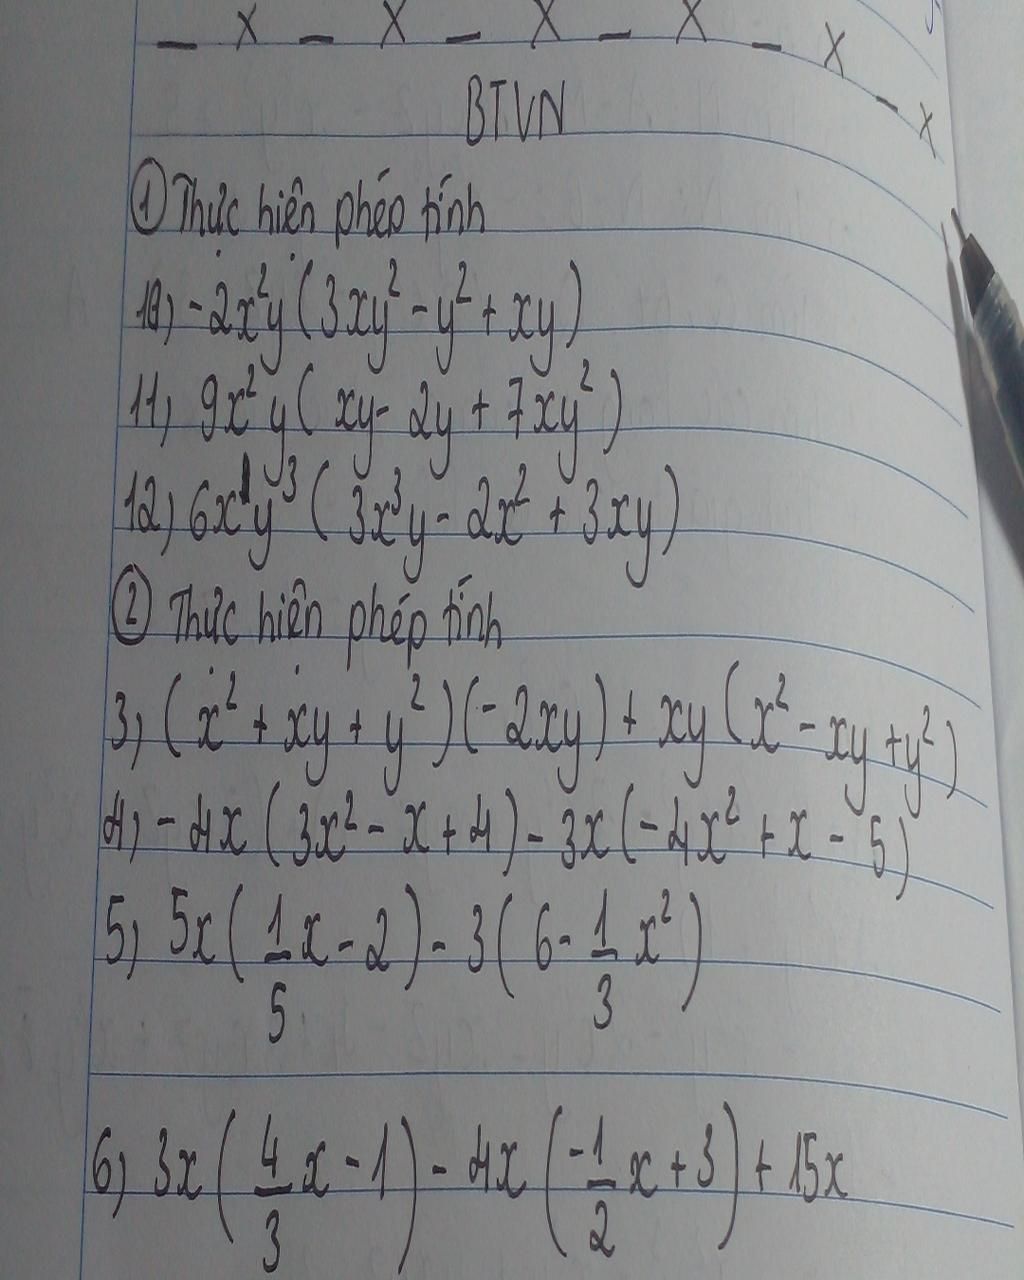 – x – x – x – x – x – x
BTVN
① Thực hiện phép tính
10) -2x²y(3xy² - y² + xy)
11) 9x²y(xy - 2y + 7xy²)
12) 6xy³(3x³y - 2x² + 3xy)
② Thực hiện phép tính
3) (x² + xy + y²)(-2xy) + xy(x² - xy + y²)
4) -4x(3x² - x + 4) - 3x(-4x² + x - 5)
5) 5x(1/5x - 2) - 3(6 - 1/3x²)
6) 3x(4/3x - 1) - 4x(-1/2x + 3) + 15x